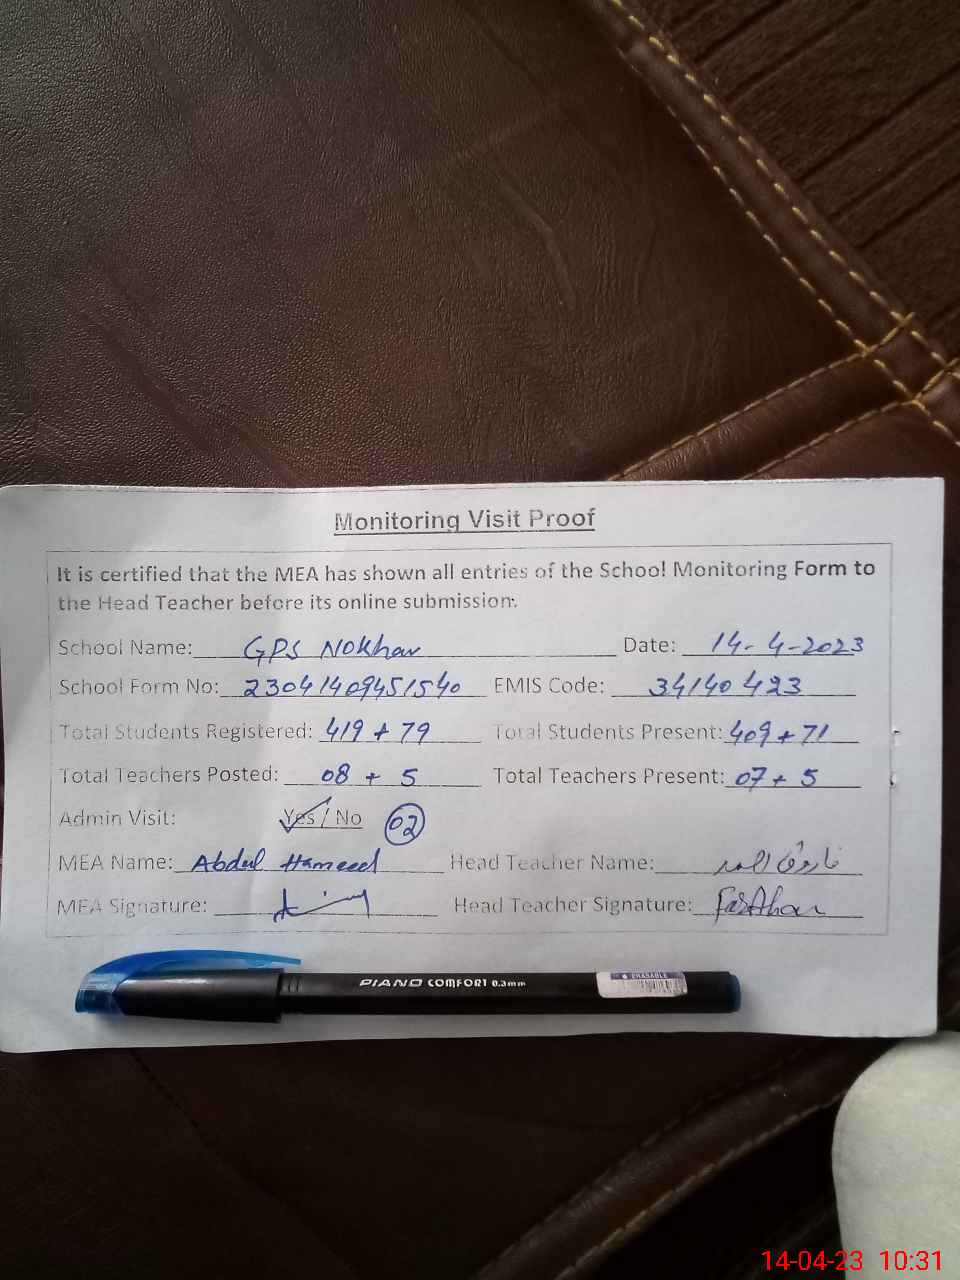 Monitoring Visit Proof
It is certified that the MEA has shown all entries of the School Monitoring Form to
the Head Teacher before its online submission.
School Name: GPS Nokhar Date: 14-4-2023
School Form No: 23041409451540 EMIS Code: 34140423
Total Students Registered: 419 + 79 Total Students Present: 409 + 71
Total Teachers Posted: 08 + 5 Total Teachers Present: 07 + 5
Admin Visit: Yes / No 02
MEA Name: Abdul Hameed Head Teacher Name:
MEA Signature: Head Teacher Signature:
PIANO COMFORT 0.3mm ERASABLE
14-04-23 10:31